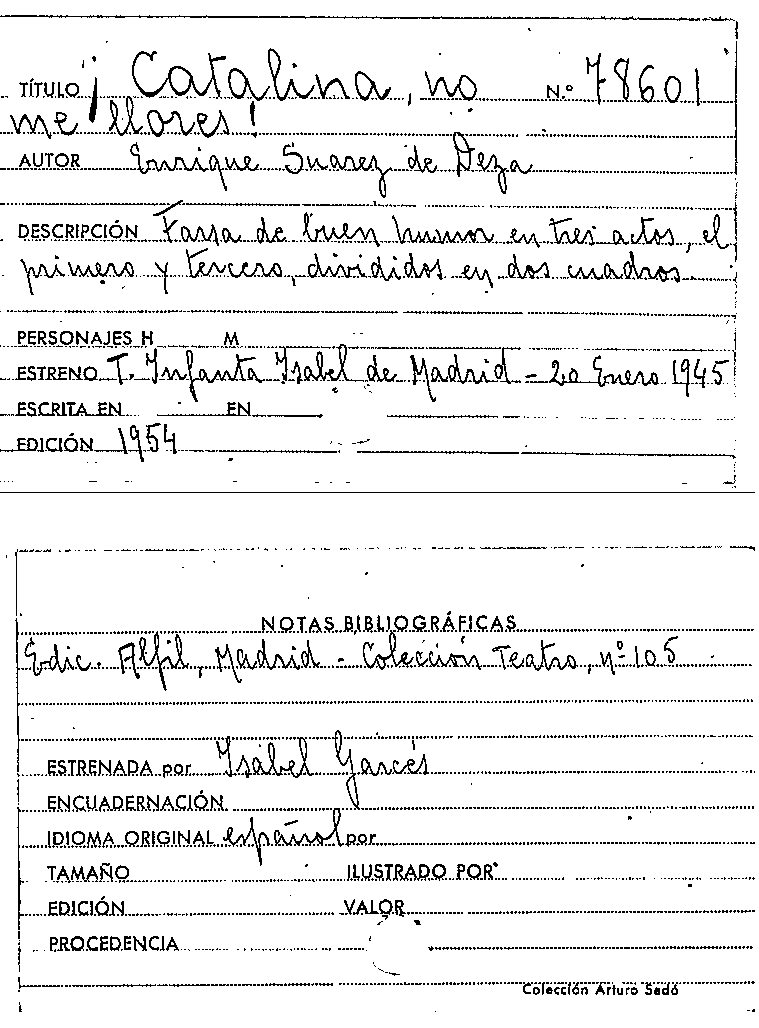 TÍTULO ¡Catalina, no N.º 78601
me llores!
AUTOR Enrique Suarez de Deza
DESCRIPCIÓN Farsa de buen humor en tres actos, el
primero y tercero, divididos en dos cuadros.
PERSONAJES H M
ESTRENO T. Infanta Isabel de Madrid - 20 Enero 1945
ESCRITA EN EN
EDICIÓN 1954
NOTAS BIBLIOGRÁFICAS
Edic. Alfil, Madrid - Colección Teatro, nº 105
ESTRENADA por Isabel Garcés
ENCUADERNACIÓN
IDIOMA ORIGINAL español por
TAMAÑO ILUSTRADO POR
EDICIÓN VALOR
PROCEDENCIA
Colección Arturo Sedó